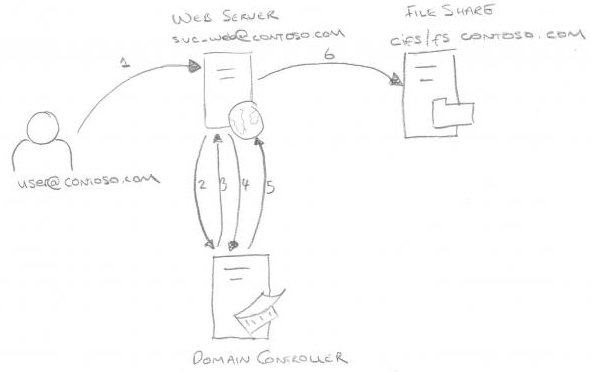 WEB SERVER
svc_web@CONTOSO.COM
FILE SHARE
cifs/fs CONTOSO.COM
1
6
user@CONTOSO.COM
2 3 4 5
DOMAIN CONTROLLER